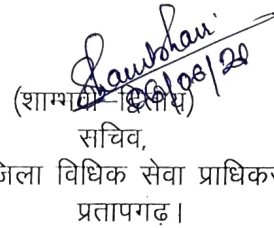 Shambhavi
(शाम्भवी द्विवेदी)
सचिव,
जिला विधिक सेवा प्राधिकर
प्रतापगढ़।